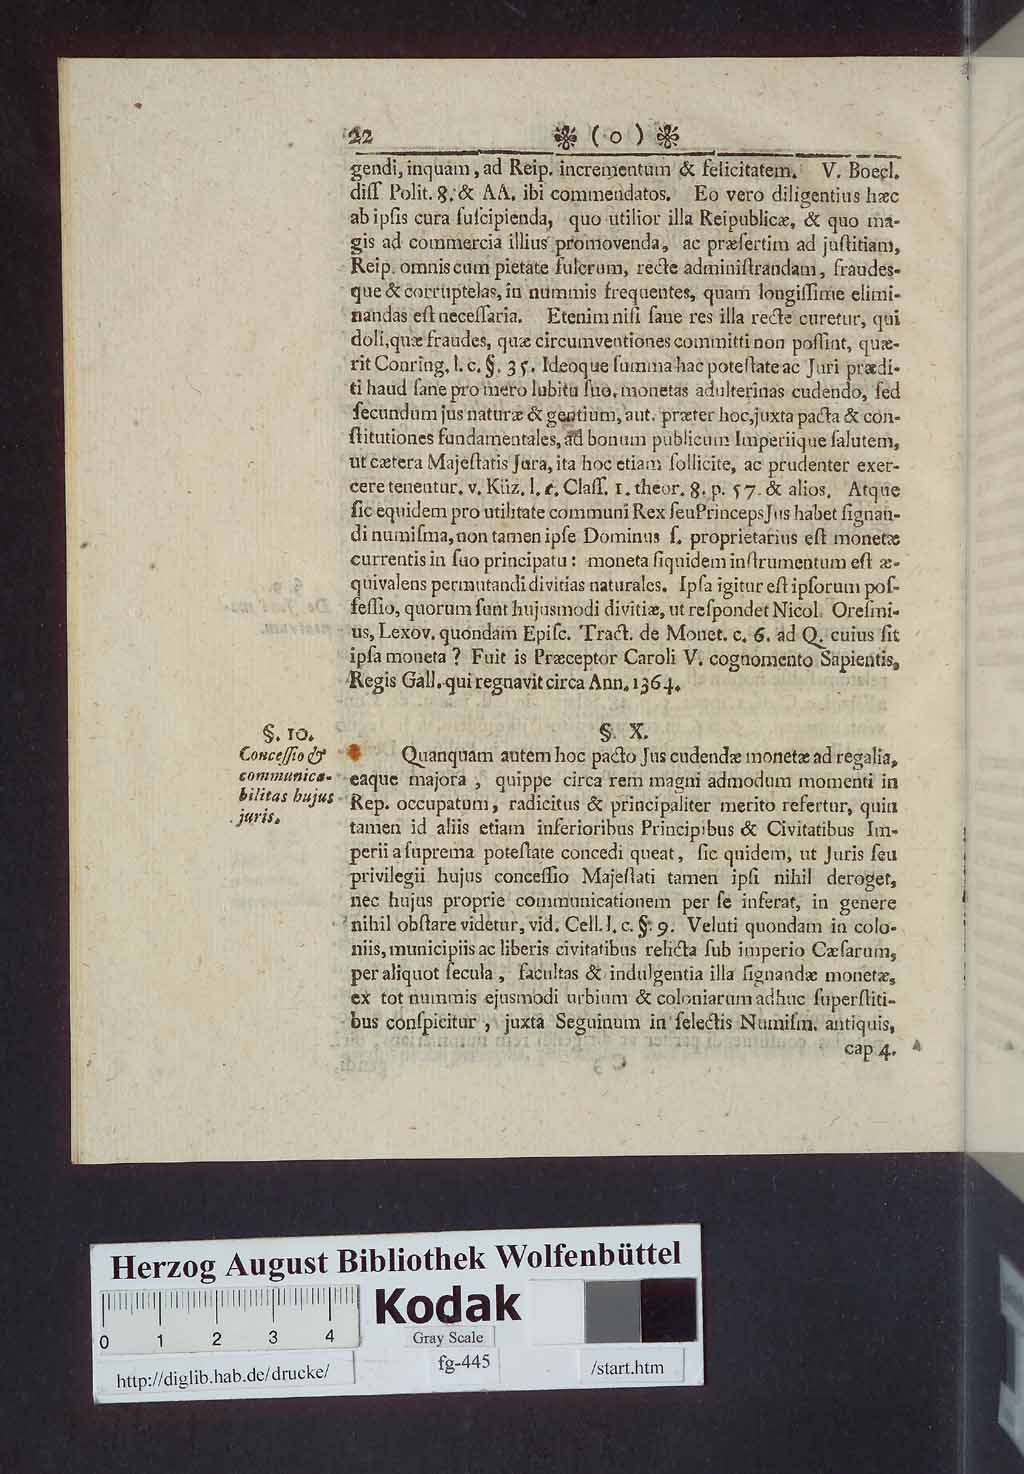 22 ( o )
gendi, inquam, ad Reip. incrementum & felicitatem. V. Boecl.
diſſ Polit. 8. & AA. ibi commendatos. Eo vero diligentius hæc
ab ipſis cura ſuſcipienda, quo utilior illa Reipublicæ, & quo ma-
gis ad commercia illius promovenda, ac præſertim ad juſtitiam,
Reip. omnis cum pietate fulcrum, recte adminiſtrandam, fraudes-
que & corruptelas, in nummis frequentes, quam longiſſime elimi-
nandas eſt neceſſaria. Etenim niſi ſane res illa recte curetur, qui
doli, quæ fraudes, quæ circumventiones committi non poſſint, quæ-
rit Conring. l. c. §. 35. Ideoque ſumma hac poteſtate ac Juri prædi-
ti haud ſane pro mero lubitu ſuo, monetas adulterinas cudendo, ſed
ſecundum jus naturæ & gentium, aut. præter hoc, juxta pacta & con-
ſtitutiones fundamentales, ad bonum publicum Imperiique ſalutem,
ut cætera Majeſtatis Jura, ita hoc etiam ſollicite, ac prudenter exer-
cere tenentur. v. Küz. l. c. Claſſ. 1. theor. 8. p. 57. & alios. Atque
ſic equidem pro utilitate communi Rex ſeu Princeps Jus habet ſignan-
di numiſma, non tamen ipſe Dominus ſ. proprietarius eſt monetæ
currentis in ſuo principatu: moneta ſiquidem inſtrumentum eſt æ-
quivalens permutandi divitias naturales. Ipſa igitur eſt ipſorum poſ-
ſeſſio, quorum ſunt hujusmodi divitiæ, ut reſpondet Nicol. Oreſmi-
us, Lexov. quondam Epiſc. Tract. de Monet. c. 6. ad Q. cuius ſit
ipſa moneta? Fuit is Præceptor Caroli V. cognomento Sapientis,
Regis Gall. qui regnavit circa Ann. 1364.
§. 10.
Conceſſio &
communica-
bilitas hujus
juris.
§. X.
Quanquam autem hoc pacto Jus cudendæ monetæ ad regalia,
eaque majora, quippe circa rem magni admodum momenti in
Rep. occupatum, radicitus & principaliter merito refertur, quin
tamen id aliis etiam inferioribus Principibus & Civitatibus Im-
perii a ſuprema poteſtate concedi queat, ſic quidem, ut Juris ſeu
privilegii hujus conceſſio Majeſtati tamen ipſi nihil deroget,
nec hujus proprie communicationem per ſe inferat, in genere
nihil obſtare videtur, vid. Cell. l. c. §. 9. Veluti quondam in colo-
niis, municipiis ac liberis civitatibus relicta ſub imperio Cæſarum,
per aliquot ſecula, facultas & indulgentia illa ſignandæ monetæ,
ex tot nummis ejusmodi urbium & coloniarum adhuc ſuperſtiti-
bus conſpicitur, juxta Seguinum in ſelectis Numiſm. antiquis,
cap 4.
Herzog August Bibliothek Wolfenbüttel
Kodak
Gray Scale
0 1 2 3 4
http://diglib.hab.de/drucke/
fg-445
/start.htm